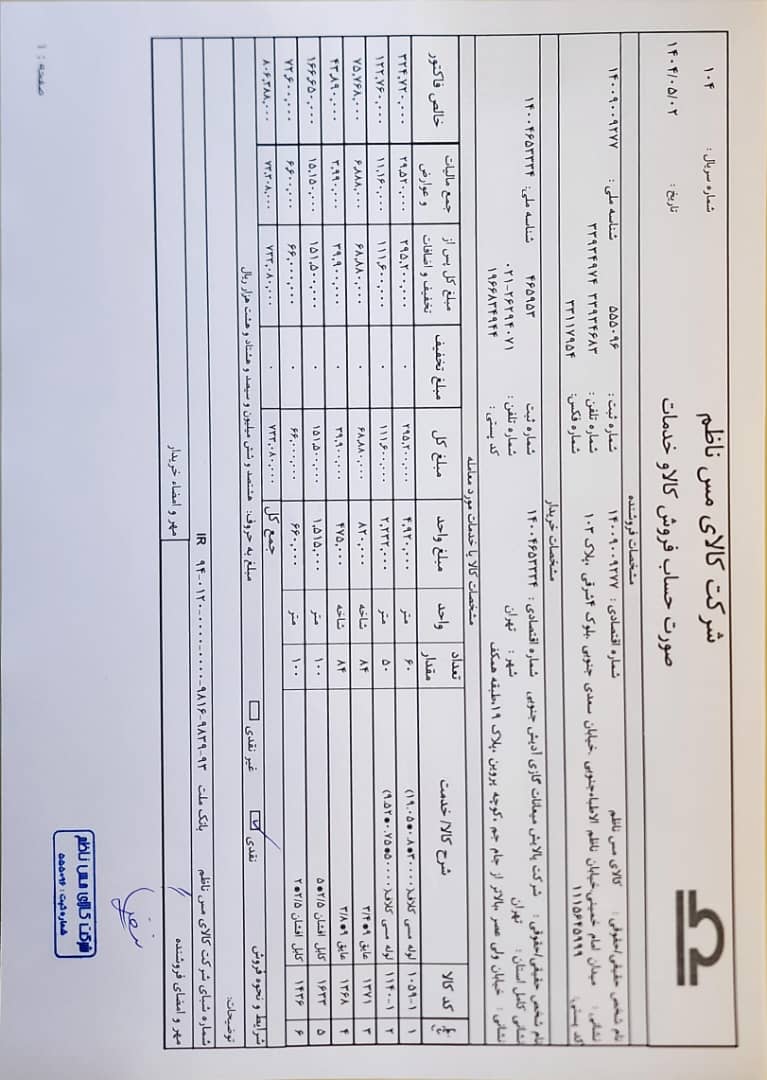 شرکت کالای مس ناظم
صورت حساب فروش کالا و خدمات
شماره سریال : ۱۰۴
تاریخ : ۱۴۰۴/۰۵/۰۲
مشخصات فروشنده
نام شخص حقیقی/حقوقی : کالای مس ناظم شماره اقتصادی : ۱۴۰۰۹۰۰۹۲۷۷ شماره ثبت : ۵۵۵۰۹۶ شناسه ملی : ۱۴۰۰۹۰۰۹۲۷۷
نشانی : میدان امام خمینی،خیابان ناظم الاطباءجنوبی ،خیابان سعدی جنوبی ،بلوک ۴شرقی ،پلاک ۱۰۳ شماره تلفن : ۳۳۹۳۴۶۸۳ ۳۳۹۳۴۹۷۴
کد پستی: ۱۱۱۵۶۴۵۹۹۹ شماره فکس: ۳۳۱۱۷۹۵۴
مشخصات خریدار
نام شخص حقیقی/حقوقی : شرکت پالایش میعانات گازی آدیش جنوبی شماره اقتصادی : ۱۴۰۰۴۶۵۳۳۳۴ شماره ثبت : ۴۶۵۹۵۳ شناسه ملی: ۱۴۰۰۴۶۵۳۳۳۴
نشانی کامل استان : تهران شهر : تهران شماره تلفن : ۰۲۱-۲۶۲۹۴۰۷۱
نشانی : خیابان ولی عصر ،بالاتر از جام جم ،کوچه پروین ،پلاک ۱۹،طبقه همکف کد پستی : ۱۹۶۶۸۳۴۹۴۴
مشخصات کالا یا خدمات مورد معامله
کد کالا شرح کالا/ خدمت تعداد مقدار واحد مبلغ واحد مبلغ کل مبلغ تخفیف مبلغ کل پس از تخفیف و اضافات جمع مالیات و عوارض خالص فاکتور
۱ ۱۰۵۹-۱ لوله مسی کلاف(۱۹.۰۵*۰.۸*۳۰۰۰۰) ۶۰ متر ۴,۹۲۰,۰۰۰ ۲۹۵,۲۰۰,۰۰۰ ۰ ۲۹۵,۲۰۰,۰۰۰ ۲۹,۵۲۰,۰۰۰ ۳۲۴,۷۲۰,۰۰۰
۲ ۱۱۴۰-۱ لوله مسی کلاف(۹.۵۲*۰.۷۵*۵۰۰۰۰) ۵۰ متر ۲,۲۳۲,۰۰۰ ۱۱۱,۶۰۰,۰۰۰ ۰ ۱۱۱,۶۰۰,۰۰۰ ۱۱,۱۶۰,۰۰۰ ۱۲۲,۷۶۰,۰۰۰
۳ ۱۳۷۱ عایق ۹*۳/۴ ۸۴ شاخه ۸۲۰,۰۰۰ ۶۸,۸۸۰,۰۰۰ ۰ ۶۸,۸۸۰,۰۰۰ ۶,۸۸۸,۰۰۰ ۷۵,۷۶۸,۰۰۰
۴ ۱۳۶۸ عایق ۹*۳/۸ ۸۴ شاخه ۴۷۵,۰۰۰ ۳۹,۹۰۰,۰۰۰ ۰ ۳۹,۹۰۰,۰۰۰ ۳,۹۹۰,۰۰۰ ۴۳,۸۹۰,۰۰۰
۵ ۱۶۳۳ کابل افشان ۲/۵*۵ ۱۰۰ متر ۱,۵۱۵,۰۰۰ ۱۵۱,۵۰۰,۰۰۰ ۰ ۱۵۱,۵۰۰,۰۰۰ ۱۵,۱۵۰,۰۰۰ ۱۶۶,۶۵۰,۰۰۰
۶ ۱۴۳۶ کابل افشان ۲/۵*۲ ۱۰۰ متر ۶۶۰,۰۰۰ ۶۶,۰۰۰,۰۰۰ ۰ ۶۶,۰۰۰,۰۰۰ ۶,۶۰۰,۰۰۰ ۷۲,۶۰۰,۰۰۰
جمع کل ۷۳۳,۰۸۰,۰۰۰ ۰ ۷۳۳,۰۸۰,۰۰۰ ۷۳,۳۰۸,۰۰۰ ۸۰۶,۳۸۸,۰۰۰
شرایط و نحوه فروش نقدی غیر نقدی مبلغ به حروف: هشتصد و شش میلیون و سیصد و هشتاد و هشت هزار ریال
توضیحات:
شماره شبای شرکت کالای مس ناظم بانک ملت IR ۹۴-۰۱۲۰-۰۰۰۰-۰۰۰۰-۹۸۱۶-۹۸۳۹-۹۳
مهر و امضای فروشنده مهر و امضاء خریدار
شرکت کالای مس ناظم
شماره ثبت: ۵۵۵۰۹۶
صفحه : ۱